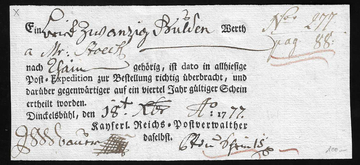 No. 277.
Ein Zwanzig Gulden Werth
pag 88.
a Mr.
nach gehörig, ist dato in allhiesige
Post-Expedition zur Bestellung richtig überbracht, und
darüber gegenwärtiger auf ein viertel Jahr gültiger Schein
ertheilt worden.
Dinckelsbühl, den 18t Xbr Ao. 1777.
Kayserl. Reichs-Postverwalther
daselbst.